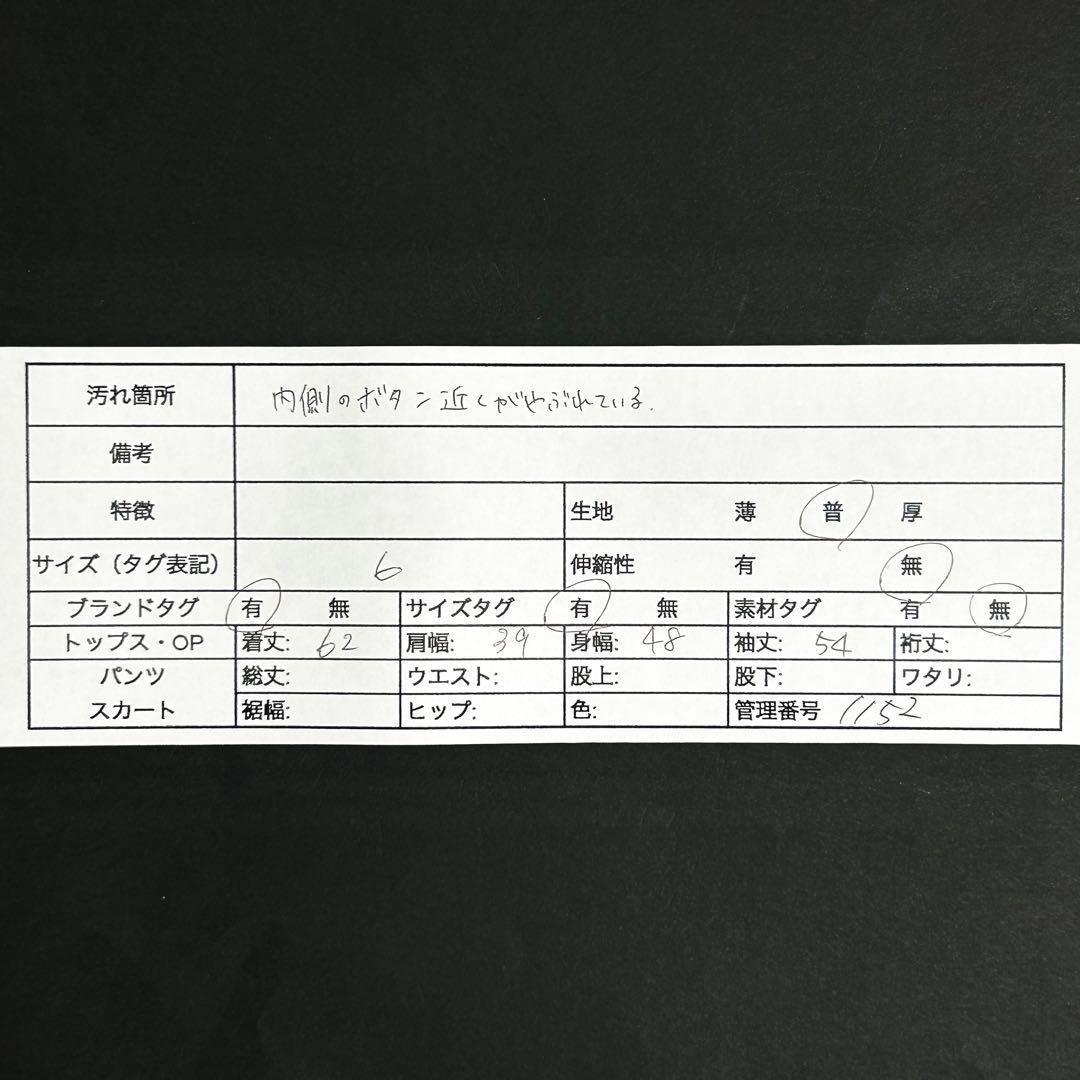 汚れ箇所 内側のボタン近くがやぶれている.
備考
特徴 生地 薄 普 厚
サイズ（タグ表記） 6 伸縮性 有 無
ブランドタグ 有 無 サイズタグ 有 無 素材タグ 有 無
トップス・OP 着丈: 62 肩幅: 39 身幅: 48 袖丈: 54 裄丈:
パンツ 総丈: ウエスト: 股上: 股下: ワタリ:
スカート 裾幅: ヒップ: 色: 管理番号 1152